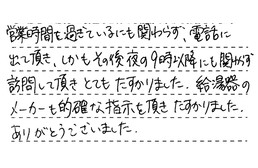 営業時間も過ぎているにも関わらず、電話に
出て頂き、しかもその後夜の9時以降にも関わず
訪問して頂きとてもたすかりました。給湯器の
メーカーも的確な指示を頂きたすかりました。
ありがとうございました。